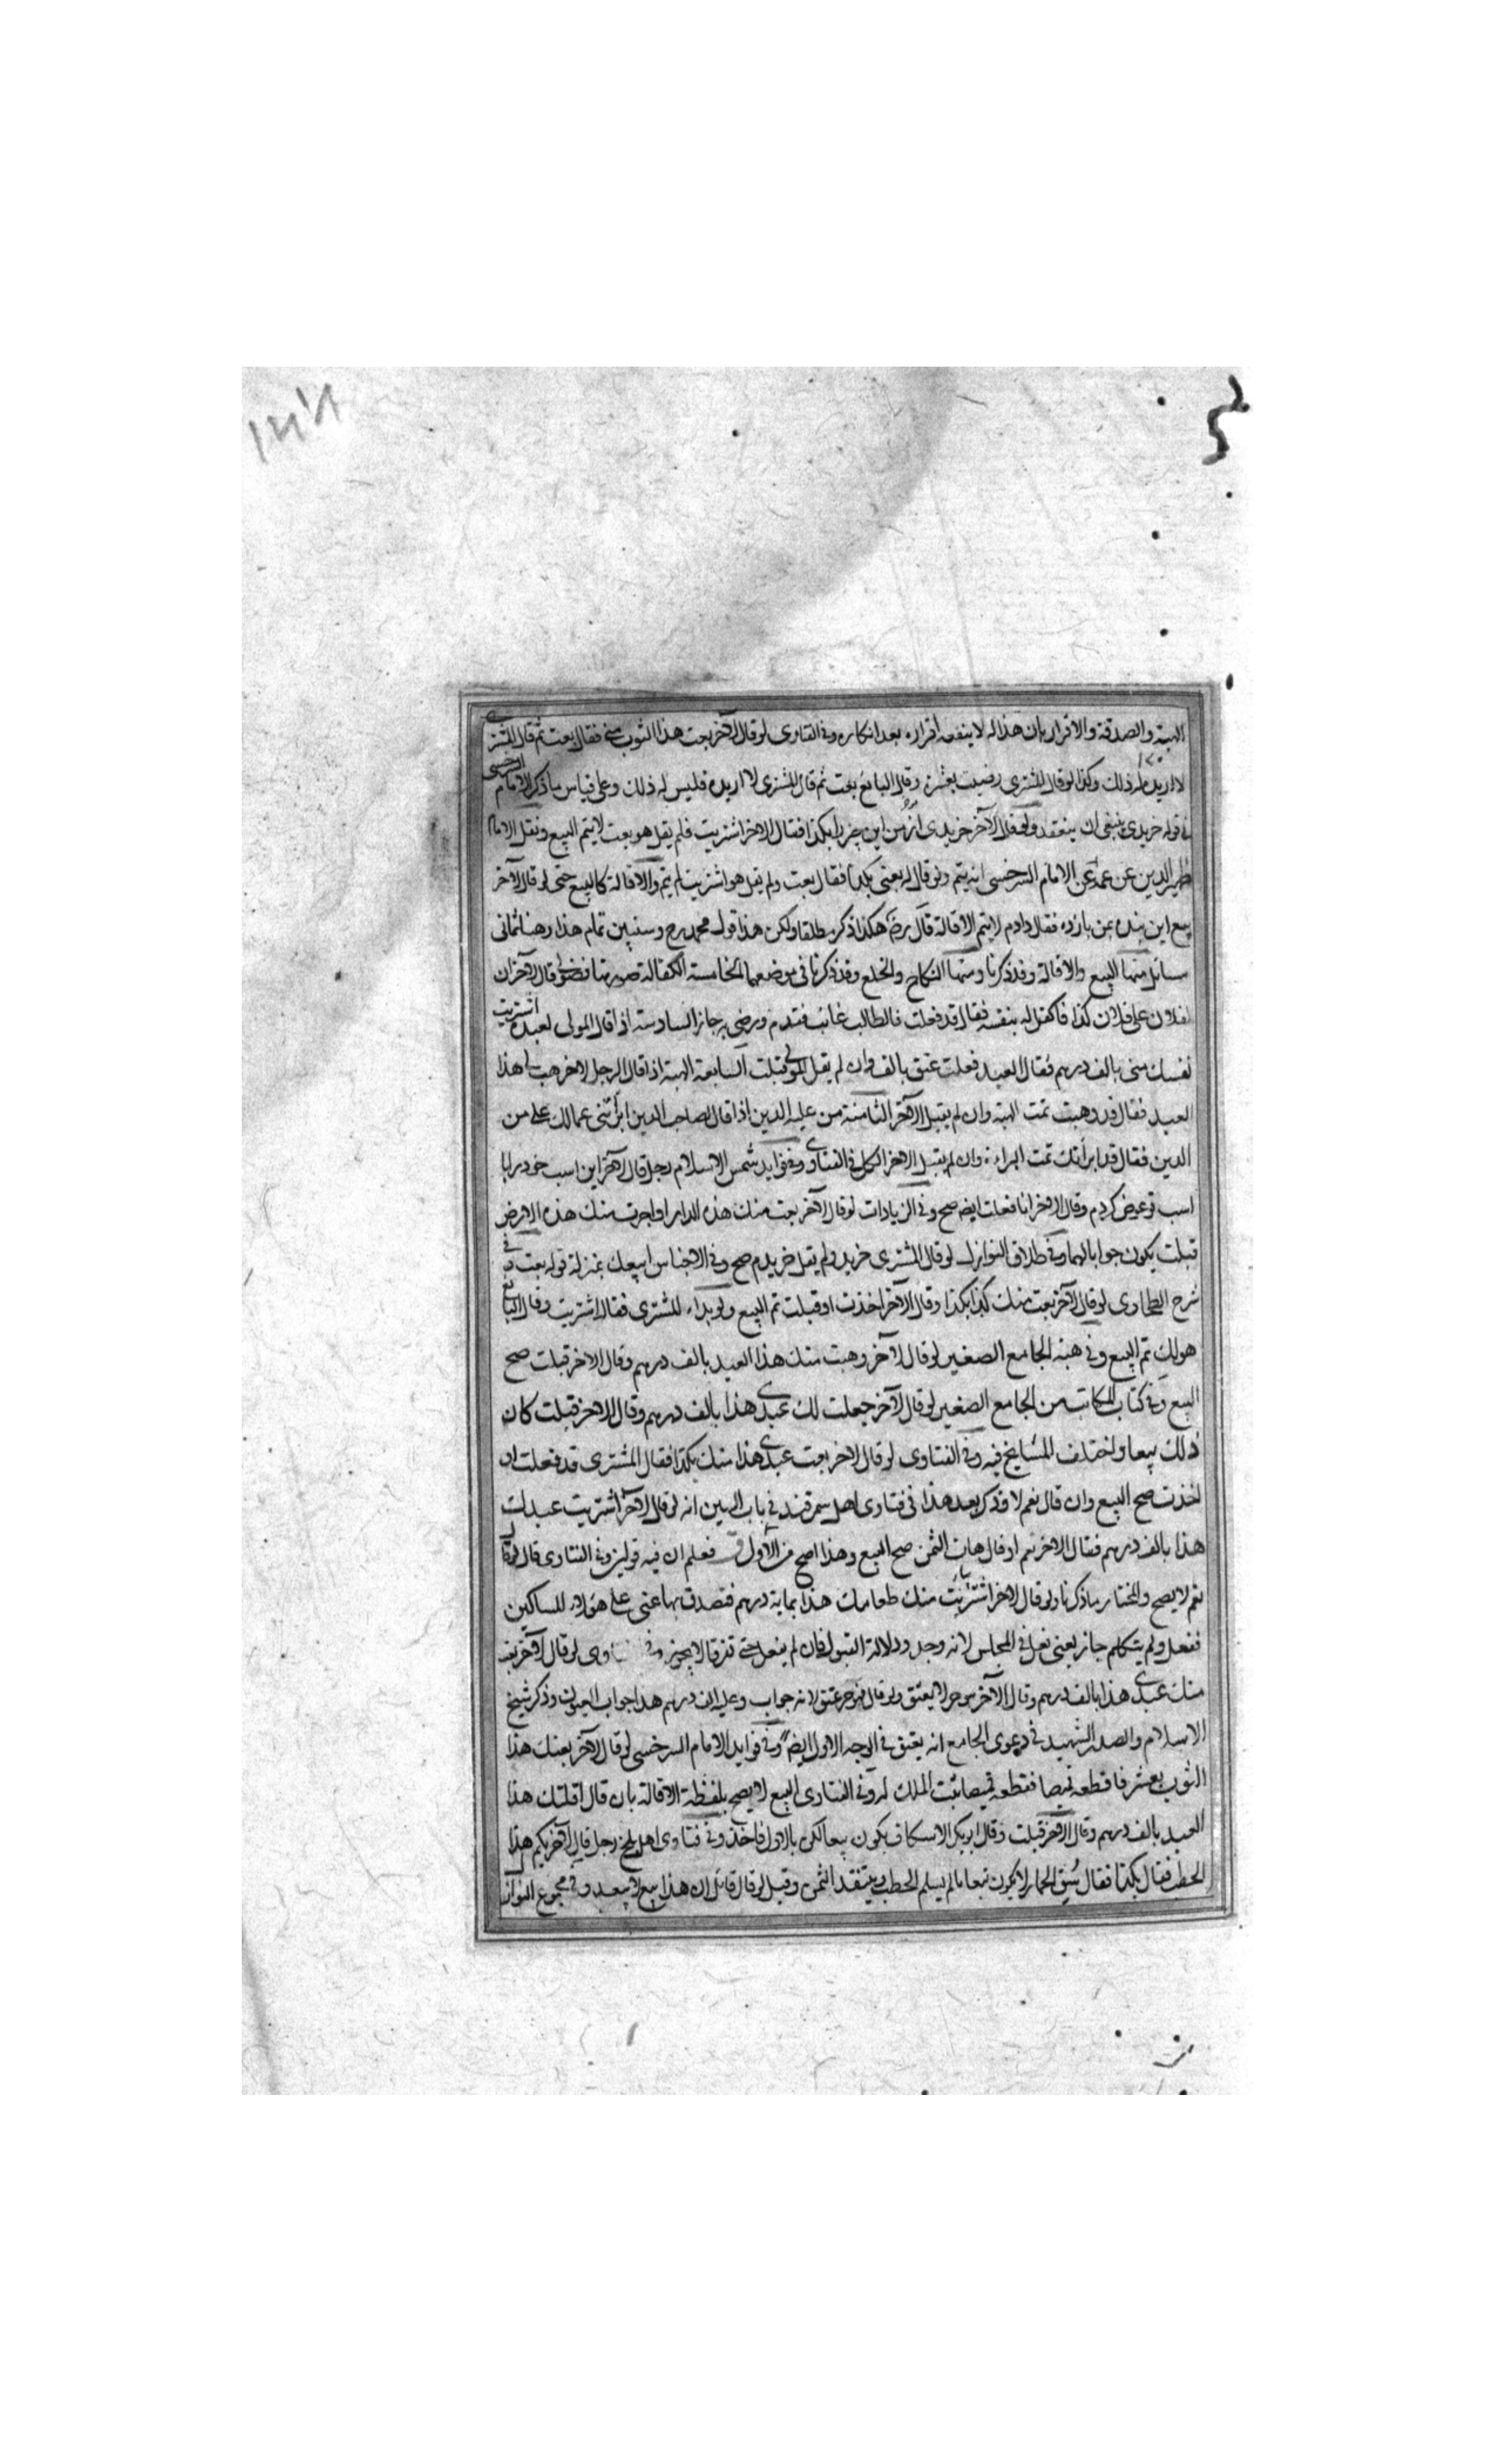 الهبة والصدقة والاقرار بان هذا له لا ينفعه اقراره بعد انكاره وفي الفتاوى لو قال لآخر بعت هذا الثوب مني فقال بعت ثم قال المشتري
لا اريد له ذلك وكذا لو قال المشتري رضيت بعشرة وقال البايع بعت ثم قال المشتري لا اريده فليس له ذلك وعلى قياس ما ذكر الامام السرخسي
في قوله خريدي ينبغي ان ينعقد ولو قال لآخر خريدى از من اين چيز را بكذا فقال الاخر اشتريت فلم يقل هو بعت لا يتم البيع ونقل الامام
ظهير الدين عن عمه عن الامام السرخسي انه يتم ولو قال له بعني بكذا فقال بعت ولم يقل هو اشتريت لم يتم والاقالة كالبيع حتى لو قال لآخر
بيع اين بنده بمن باز ده فقال دادم لا يتم الاقالة قال رضه هكذا ذكر مطلقا ولكن هذا قول محمد رح وسنبين تمام هذا وهنا ثماني
مسائل منها البيع والاقالة وقد ذكرنا ومنها النكاح والخلع وقد ذكرنا في موضعهما الخامسة الكفالة صورتها فضولي قال لآخر ان
لفلان على فلان كذا فاكفل له بنفسه فقال قد فعلت فالطالب غائب فقدم ورضي به جاز السادسة اذا قال المولى لعبده اشتريت
نفسك مني بالف درهم فقال العبد فعلت عتق بالف وان لم يقل المولى قبلت السابعة الهبة اذا قال الرجل لاخر هب لي هذا
العبد فقال قد وهبت تمت الهبة وان لم يقبل الآخر الثامنة من عليه الدين اذا قال لصاحب الدين ابرأتني عما لك علي من
الدين فقال قد ابرأتك تمت البراءة وان لم يقبل الاخر الكل في الفتاوى وفي فوايد شمس الاسلام رجل قال لآخر اين اسب خود را با
اسب تو عوض كردم وقال الاخر انا فعلت ايضا صح وفي الزيادات لو قال لآخر بعت منك هذه الدار او اجرت منك هذه الارض
قبلت يكون جوابا لهما وفي طلاق النوازل لو قال المشترى خريد ولم يقل خريدم صح وفي الاجناس ابيعك بمنزلة قوله بعت وفي
شرح الطحاوى لو قال لآخر بعت منك كذا بكذا وقال الآخر اخذت او قبلت تم البيع ولو بداء المشترى فقال اشتريت وقال البايع
هو لك تم البيع وفي هبة الجامع الصغير لو قال لآخر وهبت منك هذا العبد بالف درهم وقال الاخر قبلت صح
البيع وفي كتاب المكاتب من الجامع الصغير لو قال لآخر جعلت لك عبدي هذا بالف درهم وقال الاخر قبلت كان
ذلك بيعا واختلف المشايخ فيه وفي الفتاوى لو قال لاخر بعت عبدي هذا منك بكذا فقال المشترى قد فعلت او
اخذت صح البيع وان قال نعم لا وذكر بعد هذا في فتاوى اهل سمرقند في باب اليمين انه لو قال لآخر اشتريت عبدك
هذا بالف درهم فقال الاخر نعم او قال هات الثمن صح البيع وهذا اصح من الأول فعلم ان فيه قولين وفي الفتاوى قال
نعم لا يصح والمختار ما ذكرنا ولو قال لاخر اشتريت منك طعامك هذا بماية درهم فتصدق بها عني على هؤلاء المساكين
ففعل ولم يتكلم جاز يعني فعل في المجلس لانه وجد دلالة القبول فان لم يفعل حتى تفرقا لا يجوز وفي لو قال لآخر بعت
منك عبدي هذا بالف درهم وقال الآخر هو حر لا يعتق ولو قال فهو حر عتق لانه جواب وعليه الف درهم هذا جواب العيون وذكر شيخ
الاسلام والصدر الشهيد في دعوى الجامع انه يعتق في الوجه الاول ايضا وفي فوايد الامام السرخسي لو قال لآخر بعتك هذا
الثوب بعشر فاقطعه قميصا فقطعه قميصا ثبت الملك له وفي الفتاوى البيع لا يصح بلفظة الاقالة بان قال اقلتك هذا
العبد بالف درهم وقال الآخر قبلت وقال ابو بكر الاسكاف يكون بيعا لكن بالاول ناخذ وفي فتاوى اهل بلخ رجل قال لآخر بكم هذا
الحطب فقال بكذا فقال سق الحمار لا يكون بيعا ما لم يسلم الحطب وينتقد الثمن وقيل لو قال قائل ان هذا بيع لا يبعد وفي مجموع النوازل